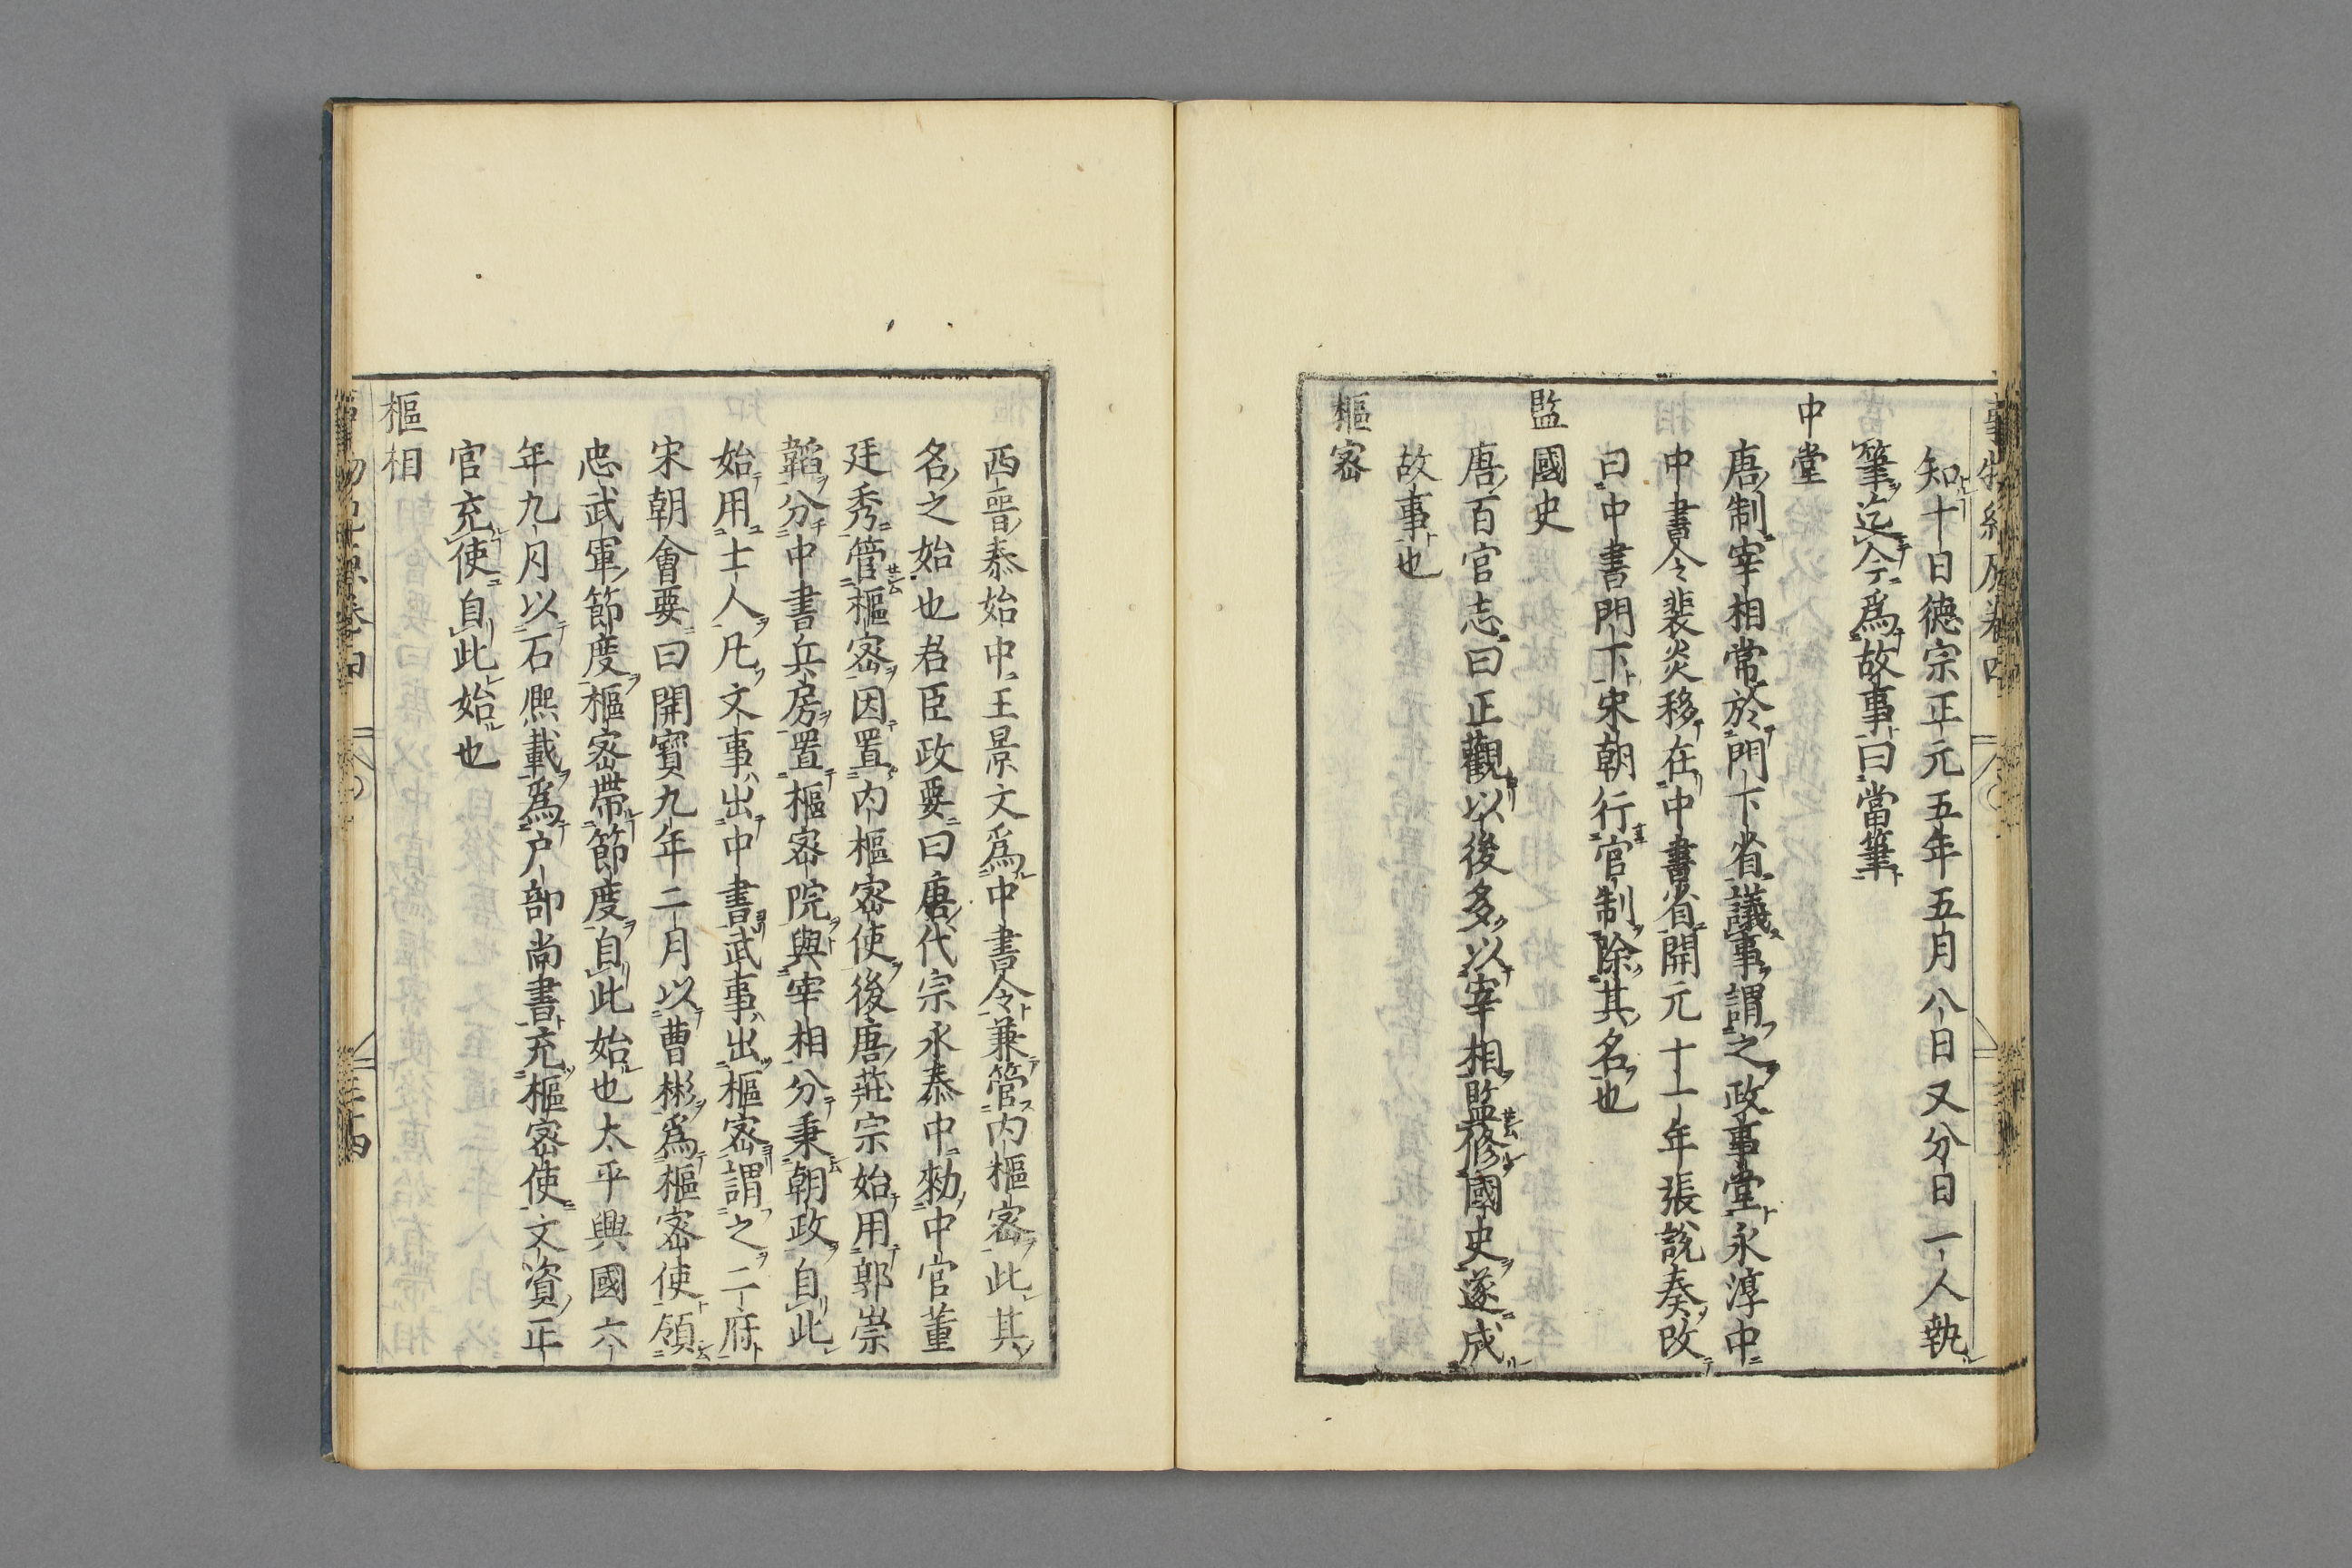 知十日德宗正元五年五月八日又分日一人執
筆迄今爲故事曰當筆
中堂
唐制宰相常於門下省議事謂之政事堂永淳中
中書令裴炎移在中書省開元十一年張說奏改
曰中書門下宋朝行官制除其名也
監國史
唐百官志曰正觀以後多以宰相監修國史遂成
故事也
樞密
西晉泰始中王景文爲中書令兼管内樞密此其
名之始也君臣政要曰唐代宗永泰中勑中官董
廷秀管樞密因置内樞密使後唐莊宗始用郭崇
韜分中書兵房置樞密院與宰相分秉朝政自此
始用士人凡文事出中書武事出樞密謂之二府
宋朝會要曰開寶九年二月以曹彬爲樞密使領
忠武軍節度樞密帶節度自此始也太平興國六
年九月以石熈載爲户部尚書充樞密使文資正
官充使自此始也
樞相